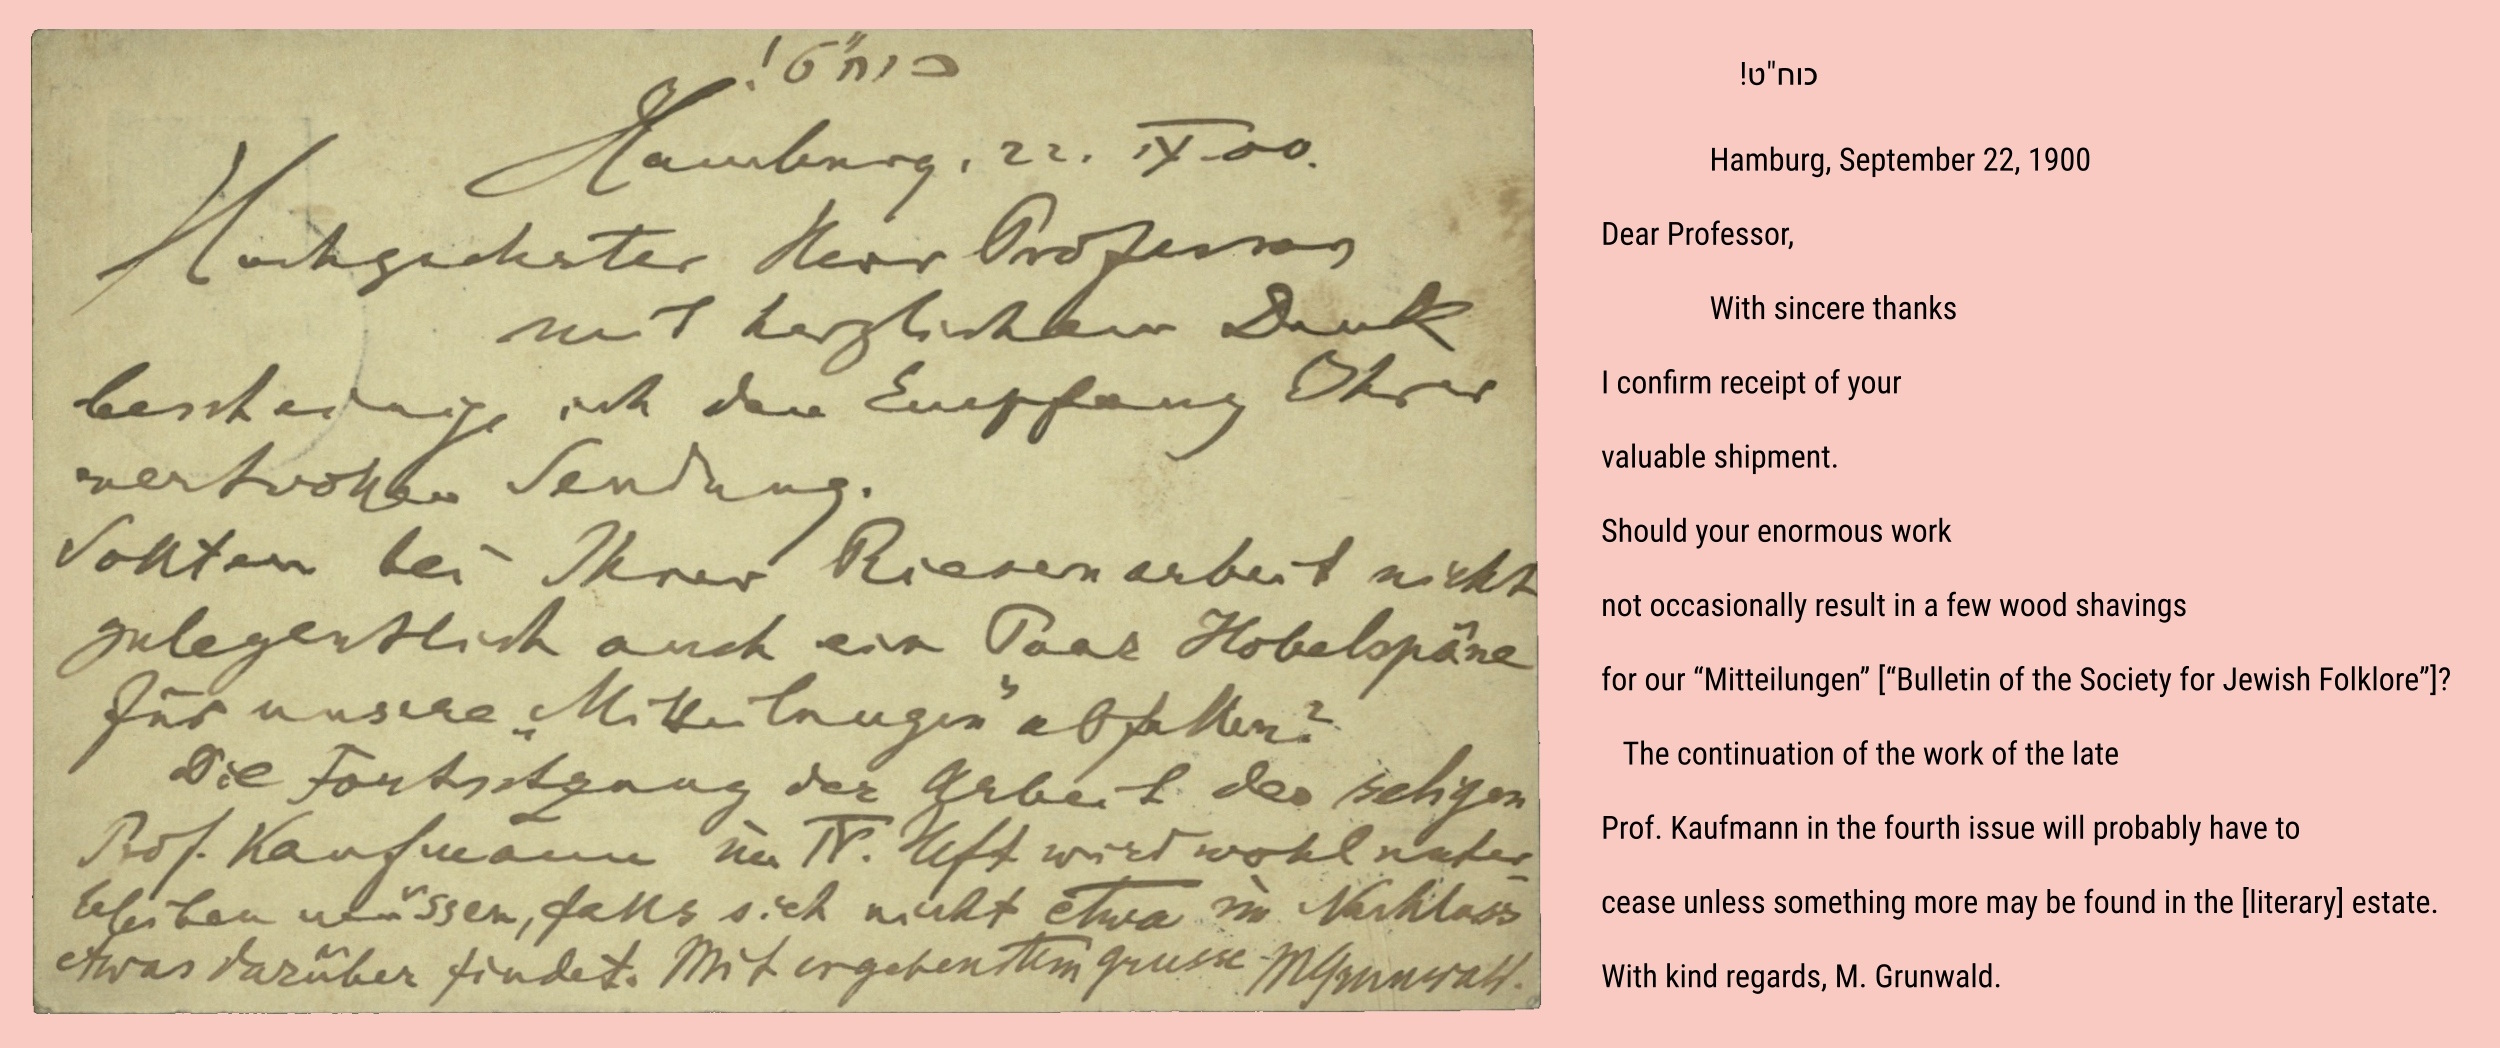 כוח"ט!
Hamburg, 22. IX. 00.
Hochgeehrter Herr Professor
mit herzlichem Dank
bescheinige ich den Empfang Ihrer
wertvollen Sendung.
Sollten bei Ihrer Riesenarbeit nicht
gelegentlich auch ein Paar Hobelspäne
für unsere „Mitteilungen“ abfallen?
Die Fortsetzung der Arbeit des seligen
Prof. Kaufmann im IV. Heft wird wohl unter-
bleiben müssen, falls sich nicht etwa im Nachlass
etwas darüber findet. Mit ergebenstem Grusse MGrunwald.
כוח"ט!
Hamburg, September 22, 1900
Dear Professor,
With sincere thanks
I confirm receipt of your
valuable shipment.
Should your enormous work
not occasionally result in a few wood shavings
for our “Mitteilungen” [“Bulletin of the Society for Jewish Folklore”]?
The continuation of the work of the late
Prof. Kaufmann in the fourth issue will probably have to
cease unless something more may be found in the [literary] estate.
With kind regards, M. Grunwald.